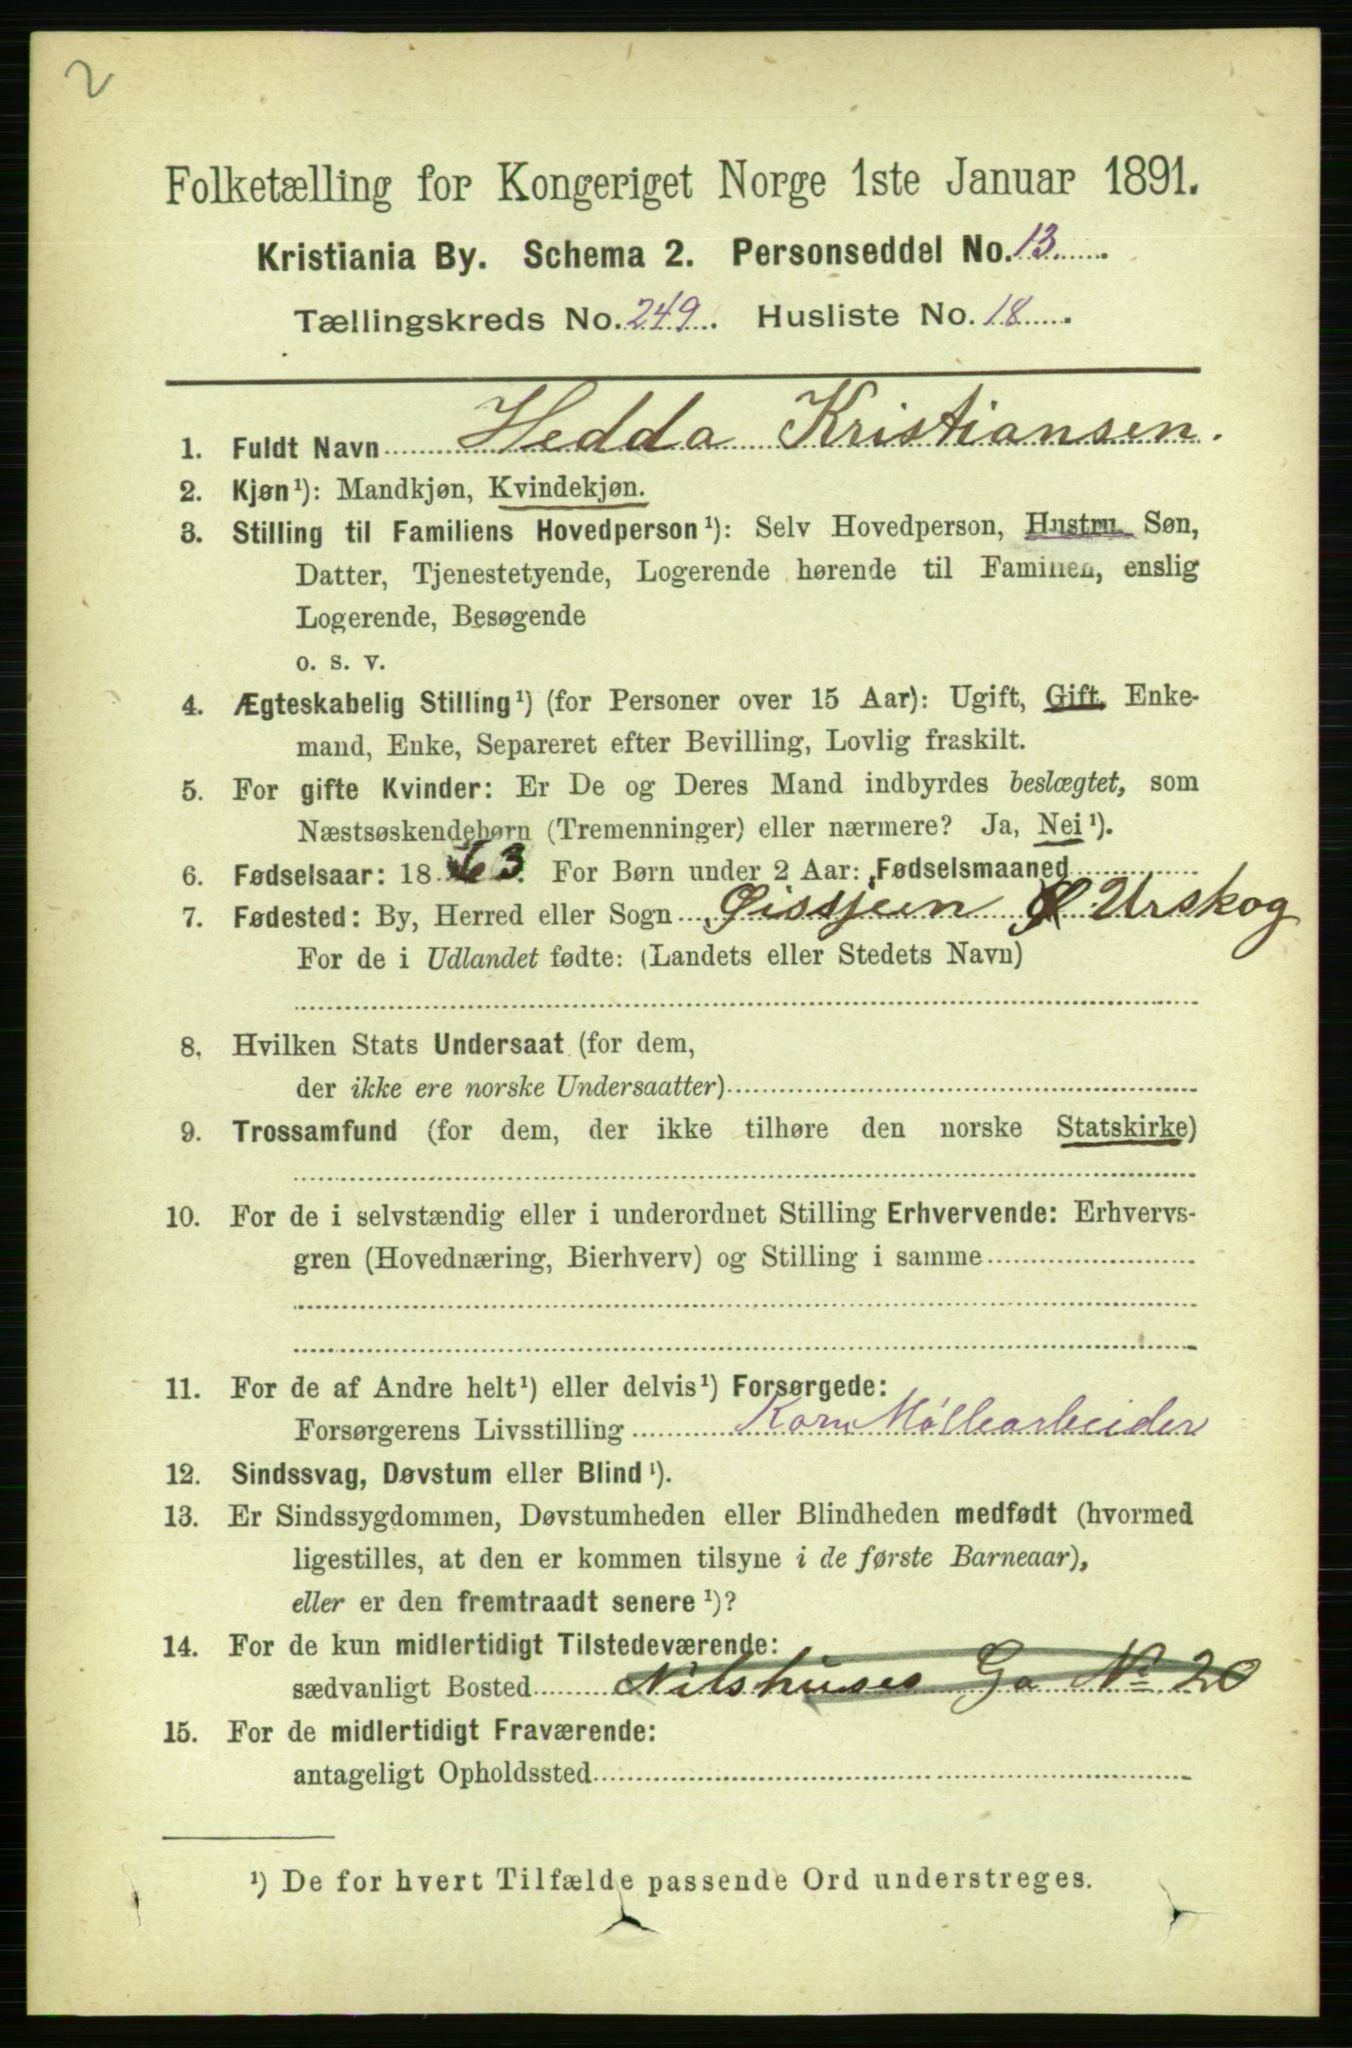 2
Folketælling for Kongeriget Norge 1ste Januar 1891.
Kristiania By. Schema 2. Personseddel No. 13.
Tællingskreds No. 249. Husliste No. 18.
1. Fuldt Navn Hedda Kristiansen.
2. Kjøn¹): Mandkjøn, Kvindekjøn.
3. Stilling til Familiens Hovedperson¹): Selv Hovedperson, Hustru Søn,
Datter, Tjenestetyende, Logerende hørende til Familien, enslig
Logerende, Besøgende
o. s. v.
4. Ægteskabelig Stilling¹) (for Personer over 15 Aar): Ugift, Gift, Enke-
mand, Enke, Separeret efter Bevilling, Lovlig fraskilt.
5. For gifte Kvinder: Er De og Deres Mand indbyrdes beslægtet, som
Næstsøskendebørn (Tremenninger) eller nærmere? Ja, Nei¹).
6. Fødselsaar: 1863. For Børn under 2 Aar: Fødselsmaaned
7. Fødested: By, Herred eller Sogn Urskog
For de i Udlandet fødte: (Landets eller Stedets Navn)
8. Hvilken Stats Undersaat (for dem,
der ikke ere norske Undersaatter)
9. Trossamfund (for dem, der ikke tilhøre den norske Statskirke)
10. For de i selvstændig eller i underordnet Stilling Erhvervende: Erhvervs-
gren (Hovednæring, Bierhverv) og Stilling i samme
11. For de af Andre helt¹) eller delvis¹) Forsørgede:
Forsørgerens Livsstilling Korn Møllearbeider
12. Sindssvag, Døvstum eller Blind¹).
13. Er Sindssygdommen, Døvstumheden eller Blindheden medfødt (hvormed
ligestilles, at den er kommen tilsyne i de første Barneaar),
eller er den fremtraadt senere¹)?
14. For de kun midlertidigt Tilstedeværende:
sædvanligt Bosted Nilshuses Ga No 20
15. For de midlertidigt Fraværende:
antageligt Opholdssted
¹) De for hvert Tilfælde passende Ord understreges.